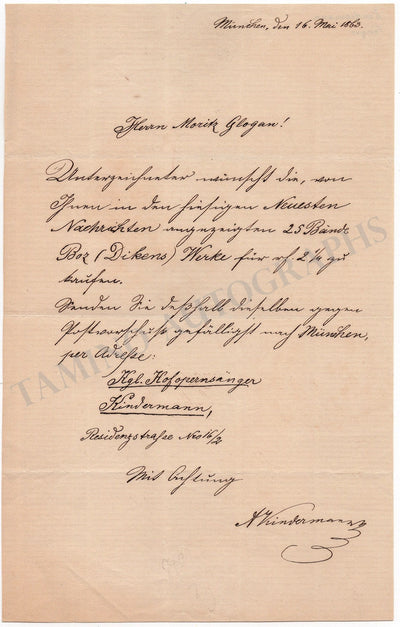 München, den 16. Mai 1863.
Herrn Moritz Glogau!
Unterzeichneter wünscht die, von
Ihnen in den hiesigen Neuesten
Nachrichten angezeigten 25 Bände
Boz (Dikens) Werke für rf. 2 ½ zu
kaufen.
Senden Sie deßhalb dieselben gegen
Postvorschuß gefälligst nach München,
per Adresse:
Kgl. Hofopernsänger
Kindermann,
Residenzstraße No 16/2
Mit Achtung
A Kindermann
TAMINO AUTOGRAPHS